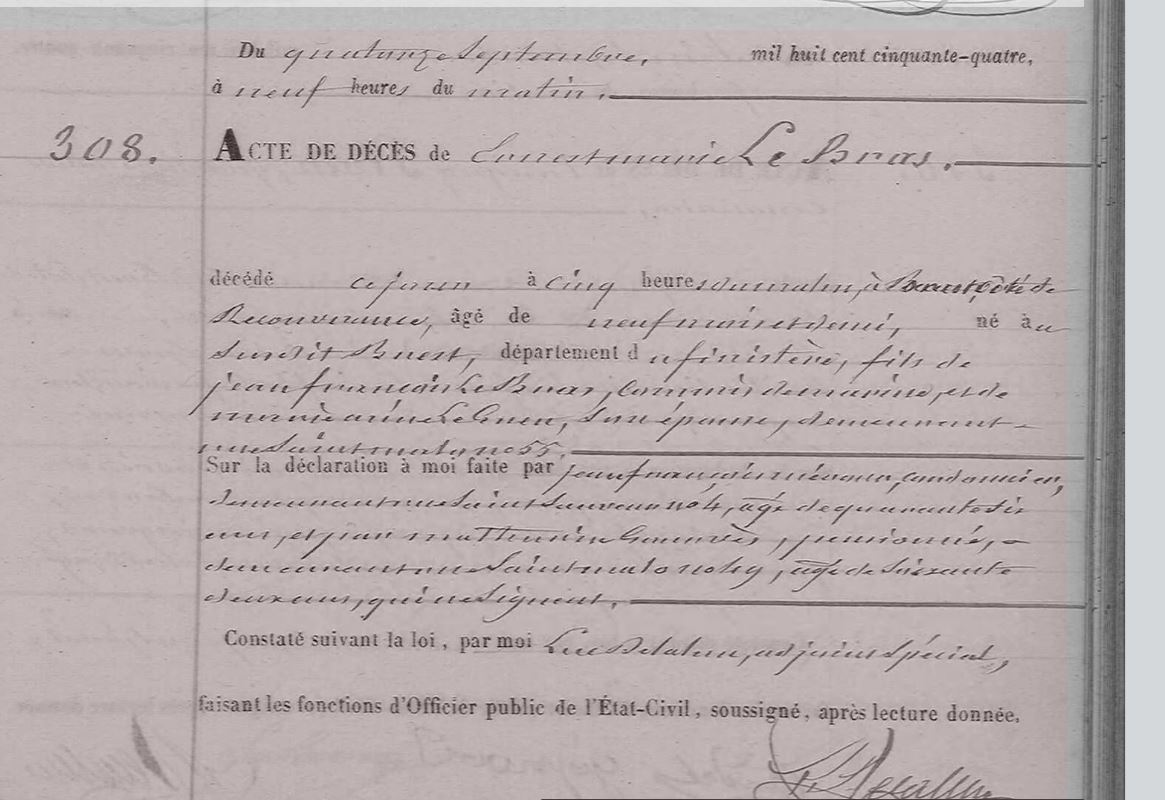 Du quatorze Septembre, mil huit cent cinquante-quatre,
à neuf heures du matin.
308. ACTE DE DÉCÈS de Ernest marie Le Bras.
décédé ce jour à cinq heures du matin, à Brest, côté de
Recouvrance, âgé de neuf mois et demi, né à u
Surdit Brest, département du finistère, fils de
jean françois Le Bras, Commis de marine, et de
marie Le Guen, Son épouse, demeurant
rue Saint malo no 55.
Sur la déclaration à moi faite par jean françois cordonnier,
demeurant rue Saint Sauveur no 4, âgé de quarante six
ans, et par mathurin pensionné,
demeurant rue Saint malo no âgé de Soixante
deux ans, qui ne Signent.
Constaté suivant la loi, par moi adjoint Spécial,
faisant les fonctions d'Officier public de l'État-Civil, soussigné, après lecture donnée.